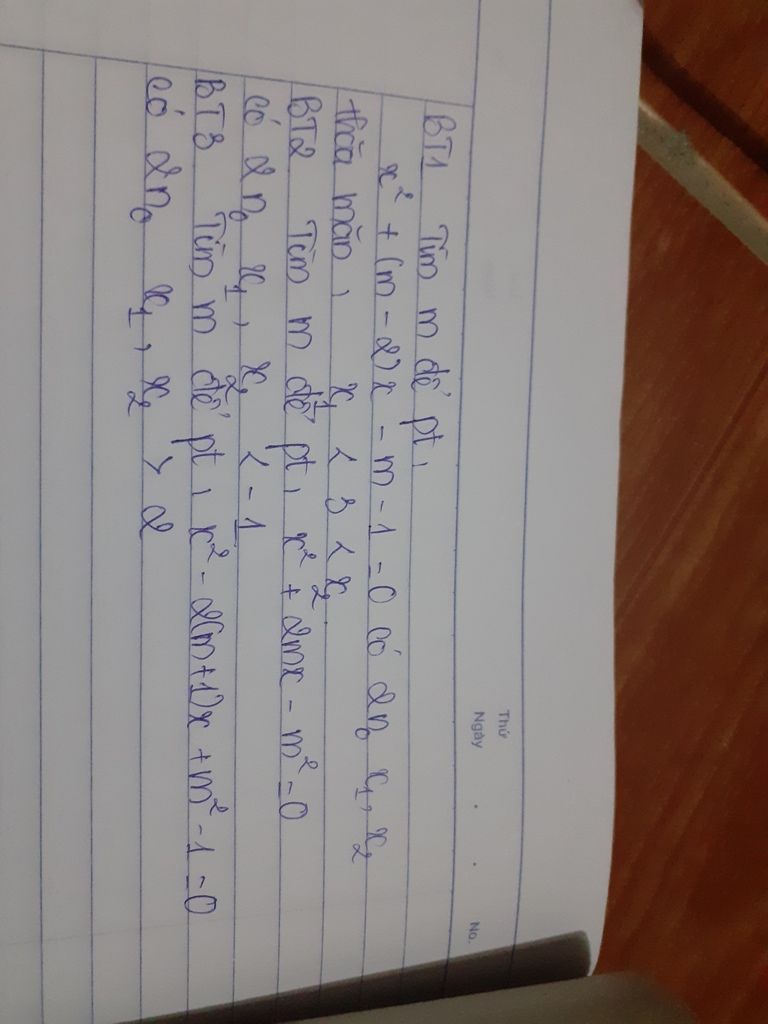 Thứ
Ngày . . No.
BT1 Tìm m để pt,
x² + (m - 2)x - m - 1 = 0 có 2n₀ x₁, x₂
thỏa mãn, x₁ < 3 < x₂
BT2 Tìm m để pt, x² + 2mx - m² = 0
có 2n₀ x₁, x₂ < -1
BT3 Tìm m để pt, x² - 2(m+1)x + m² - 1 = 0
có 2n₀ x₁, x₂ > 2